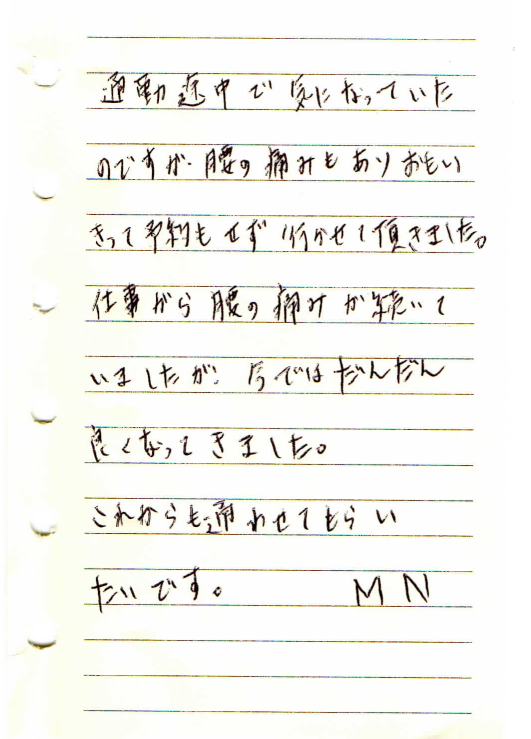 通勤途中で気になっていた
のですが、腰の痛みもありおもい
きって予約もせず行かせて頂きました。
仕事から腰の痛みが続いて
いましたが、今ではだんだん
良くなってきました。
これからも通わせてもらい
たいです。 MN